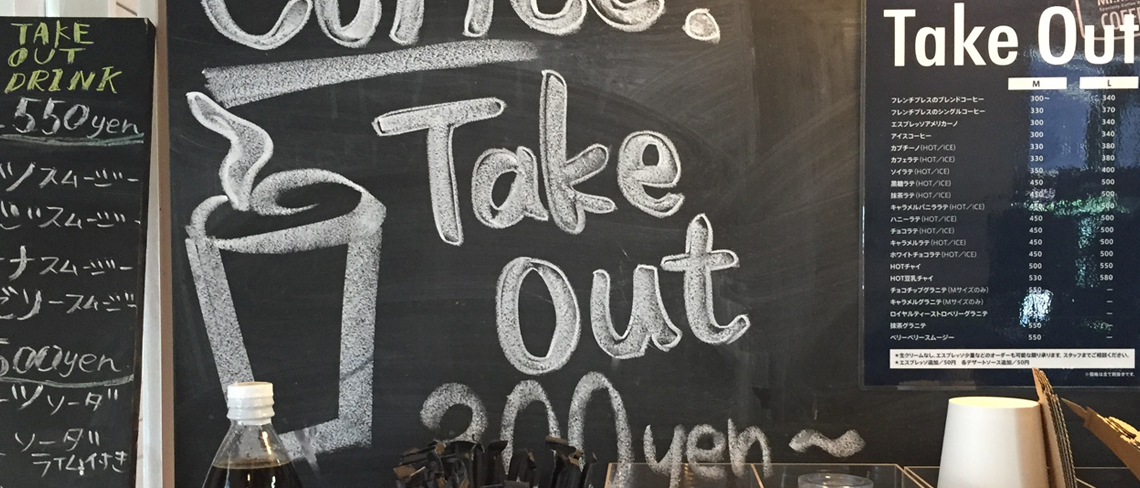 TAKE
OUT
DRINK
550yen
ツスムージー
じスムージー
ナスムージー
ゼリースムージー
500yen
ツソーダ
ソーダ
ライム付き
Coffee.
Take
out
300yen～
Take Out
M L
フレンチプレスのブレンドコーヒー 300～ 340
フレンチプレスのシングルコーヒー 330 370
エスプレッソアメリカーノ 300 340
アイスコーヒー 300 340
カプチーノ(HOT／ICE) 330 380
カフェラテ(HOT／ICE) 330 380
ソイラテ(HOT／ICE) 350 400
黒糖ラテ(HOT／ICE) 450 500
抹茶ラテ(HOT／ICE) 450 500
キャラメルバニララテ(HOT／ICE) 450 500
ハニーラテ(HOT／ICE) 450 500
チョコラテ(HOT／ICE) 450 500
キャラメルラテ(HOT／ICE) 450 500
ホワイトチョコラテ(HOT／ICE) 450 500
HOTチャイ 500 550
HOT豆乳チャイ 530 580
チョコチップグラニテ(Mサイズのみ) 550 —
キャラメルグラニテ(Mサイズのみ) —
ロイヤルティーストロベリーグラニテ —
抹茶グラニテ 550 —
ベリーベリースムージー 550 —
＊生クリームなし、エスプレッソ少量などのオーダーも可能な限り承ります。スタッフまでご相談ください。
＊エスプレッソ追加／50円 各デザートソース追加／50円
※価格は全て税抜きです。